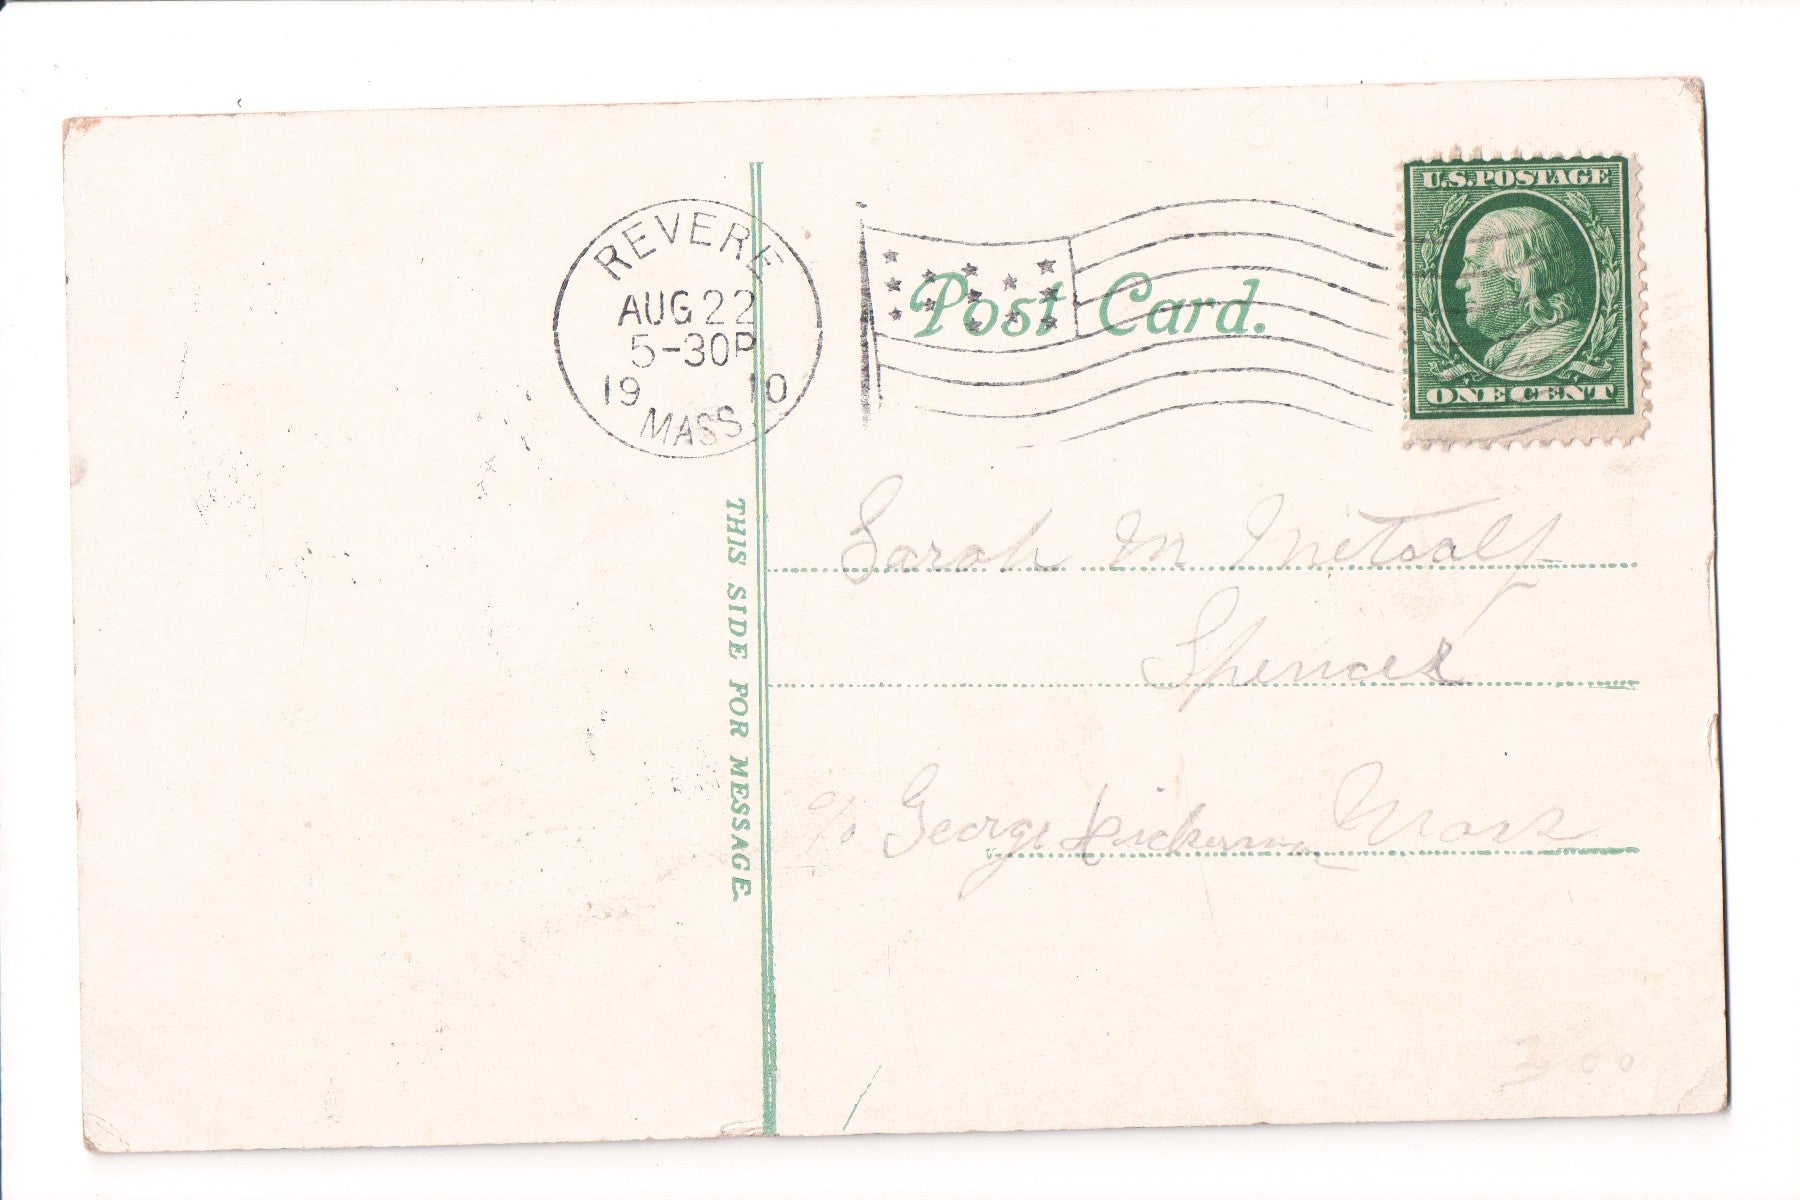 REVERE
AUG 22
5-30P
19 10
MASS.
Post Card.
U.S. POSTAGE
ONE CENT
THIS SIDE FOR MESSAGE.
Sarah M Metcalf
Spencer
c/o George Mass
3.00